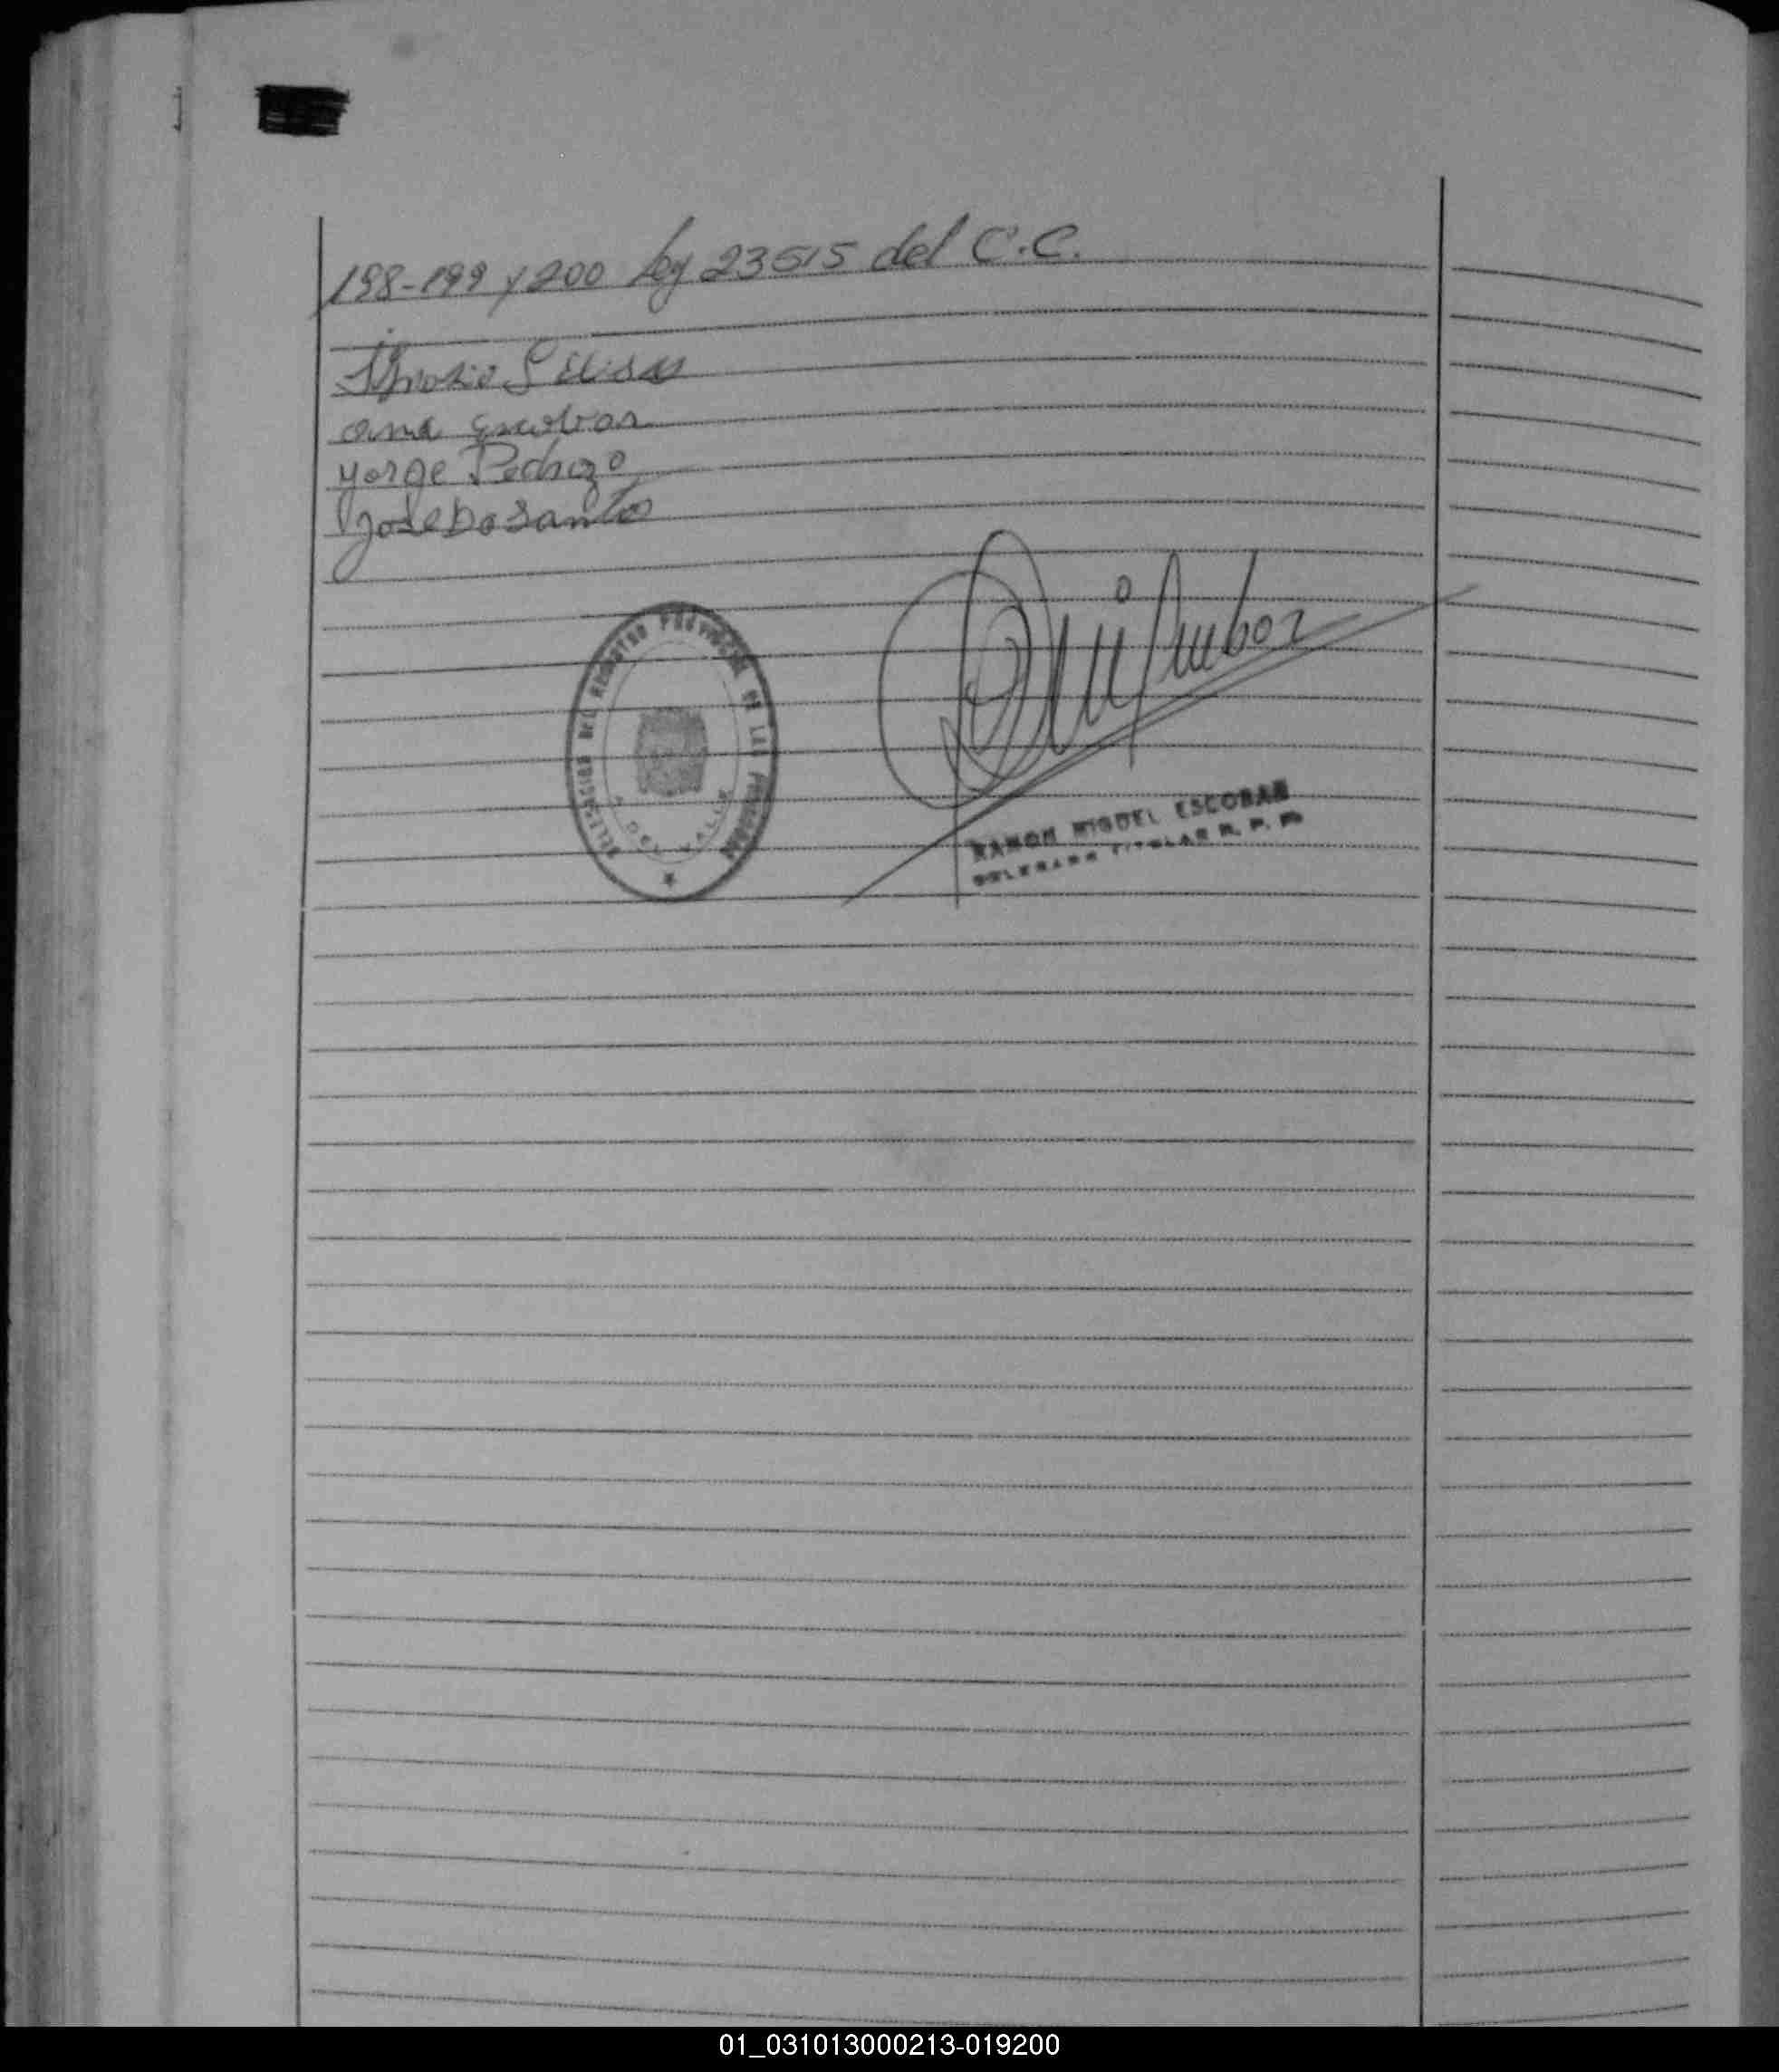 198-199 y 200 ley 23515 del C.C.
ana Escobar
yorge Pedrozo
Jose Do Santo
DELEGACION DEL REGISTRO PROVINCIAL DE LAS PERSONAS
DEL VALLE
RAMON MIGUEL ESCOBAR
DELEGADO TITULAR R. P. P.
01_031013000213-019200